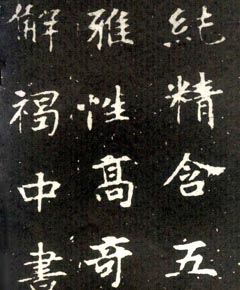 純精含五
雅性高奇
解褐中書